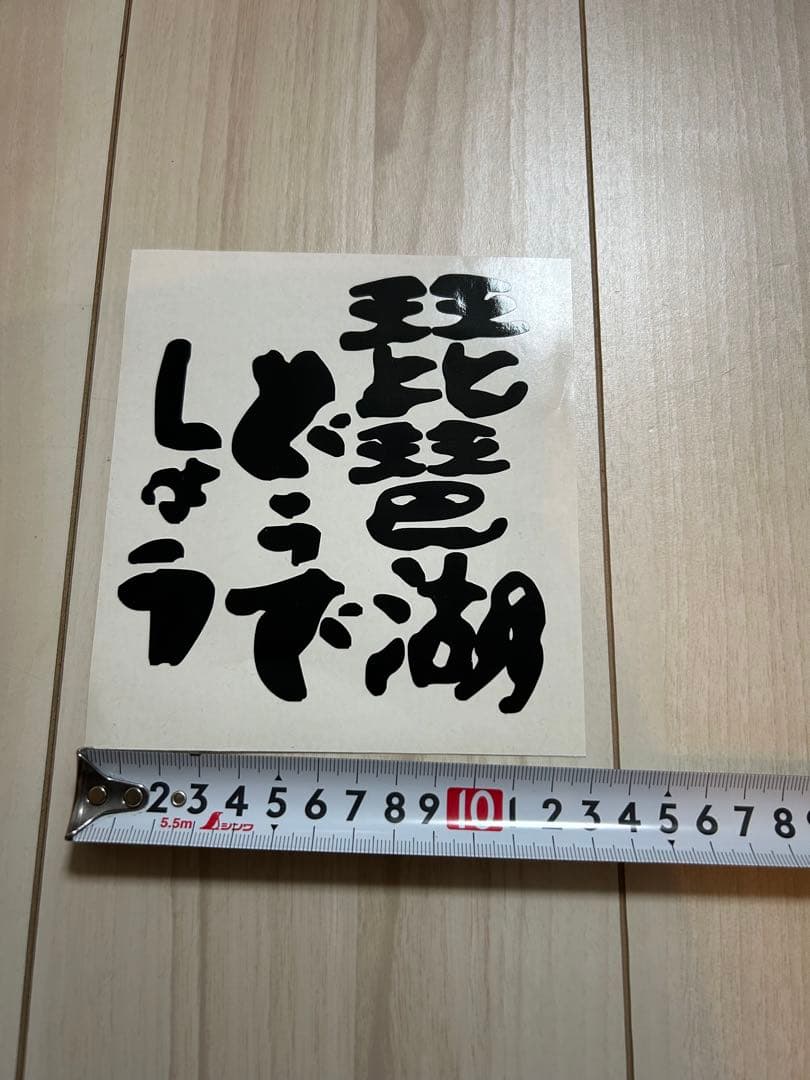 琵琶湖
どうで
しょう
2 3 4 5 6 7 8 9 10 1 2 3 4 5 6 7 8
5.5m シンワ